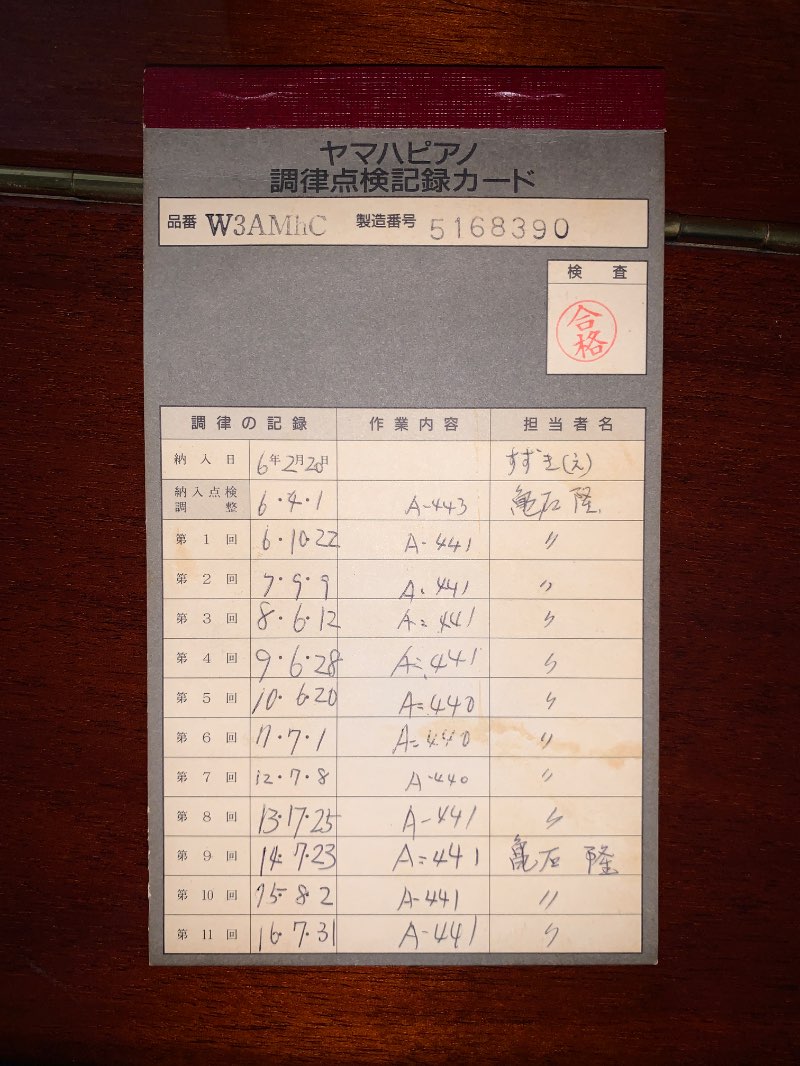 ヤマハピアノ
調律点検記録カード
品番 W3AMhC 製造番号 5168390
検査
合格
調律の記録 作業内容 担当者名
納入日 6年2月20日 すずき(え)
納入点検調整 6・4・1 A-443 亀石 隆
第1回 6・10・22 A-441 〃
第2回 7・9・9 A・441 〃
第3回 8・6・12 A=441 〃
第4回 9・6・28 A=441 〃
第5回 10・6・20 A=440 〃
第6回 11・7・1 A=440 〃
第7回 12・7・8 A-440 〃
第8回 13・17・25 A-441 〃
第9回 14・7・23 A=441 亀石 隆
第10回 15・8・2 A-441 〃
第11回 16・7・31 A-441 〃